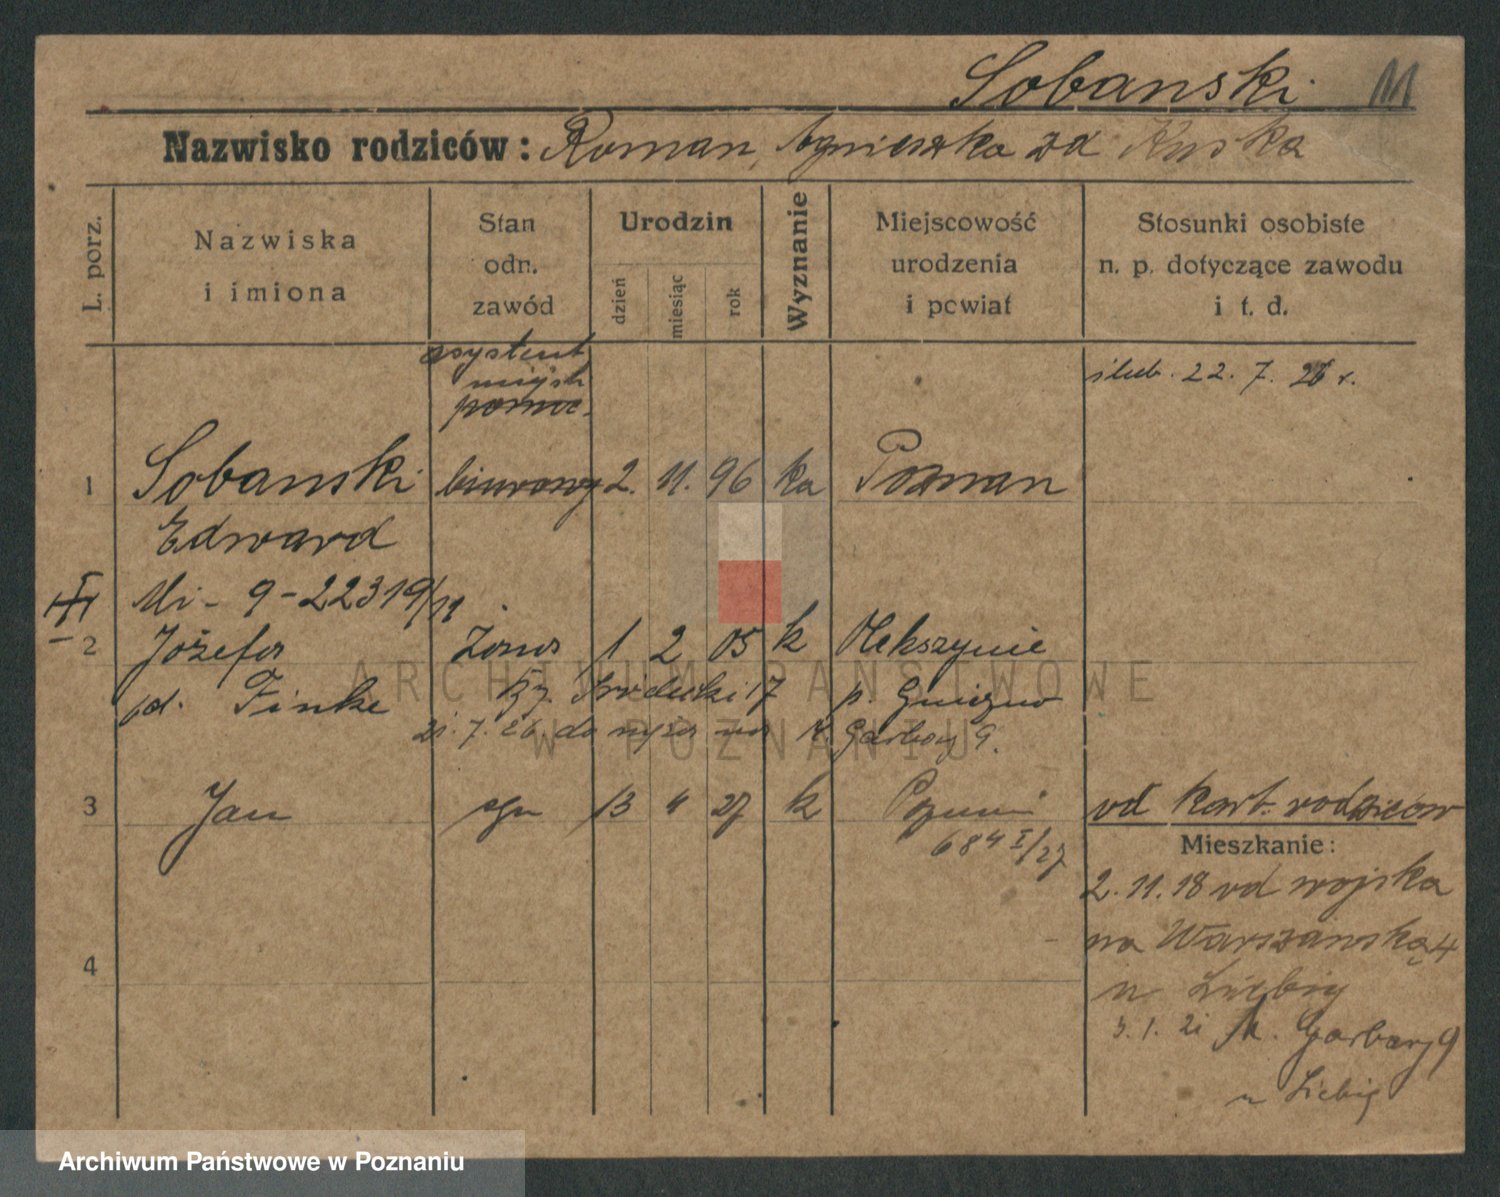 Sobanski
Nazwisko rodziców: Roman, Agnieszka zd Ruska
L. porz.
Nazwiska
i imiona
Stan
odn.
zawód
Urodzin
dzień
miesiąc
rok
Wyznanie
Miejscowość
urodzenia
i powiat
Stosunki osobiste
n. p. dotyczące zawodu
i t. d.
asystent
miejsk
pomoc.
ślub. 22. 7. 26 r.
1 Sobanski biurowy 2. 11. 96 ka Poznan
Edward
Mi - 9 - 22319/11
2 Józefa żona 1 2 05 k
zd. Finke 17 p. Gniezno
21. 7. 26. do M. Garbary 9.
3 Jan syn 13 4 27 k Poznań
684 I/27
od kart. rodziców
Mieszkanie:
2. 11. 18 od wojska
na 4
u Liebig
3. 1. 21 M. Garbary 9
u Liebig
4
ARCHIWUM PAŃSTWOWE
W POZNANIU
Archiwum Państwowe w Poznaniu